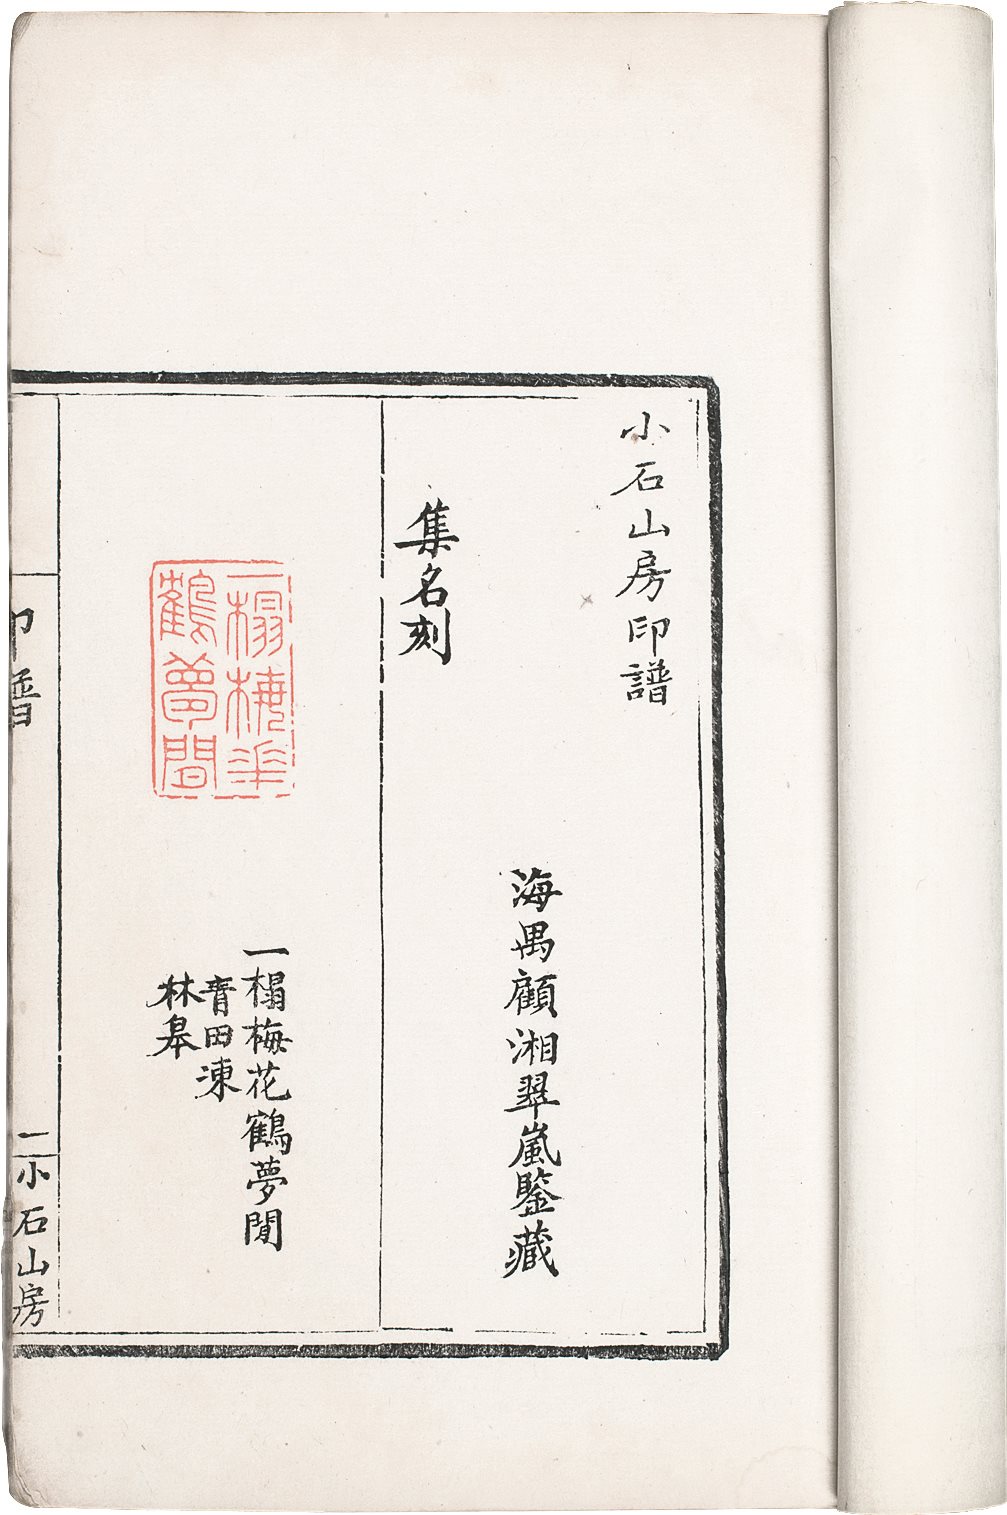 小石山房印譜
海禺顧湘翠嵐鑒藏
集名刻
一榻梅華
鶴夢閒
一榻梅花鶴夢閒
青田凍
林皋
印譜
一
小石山房